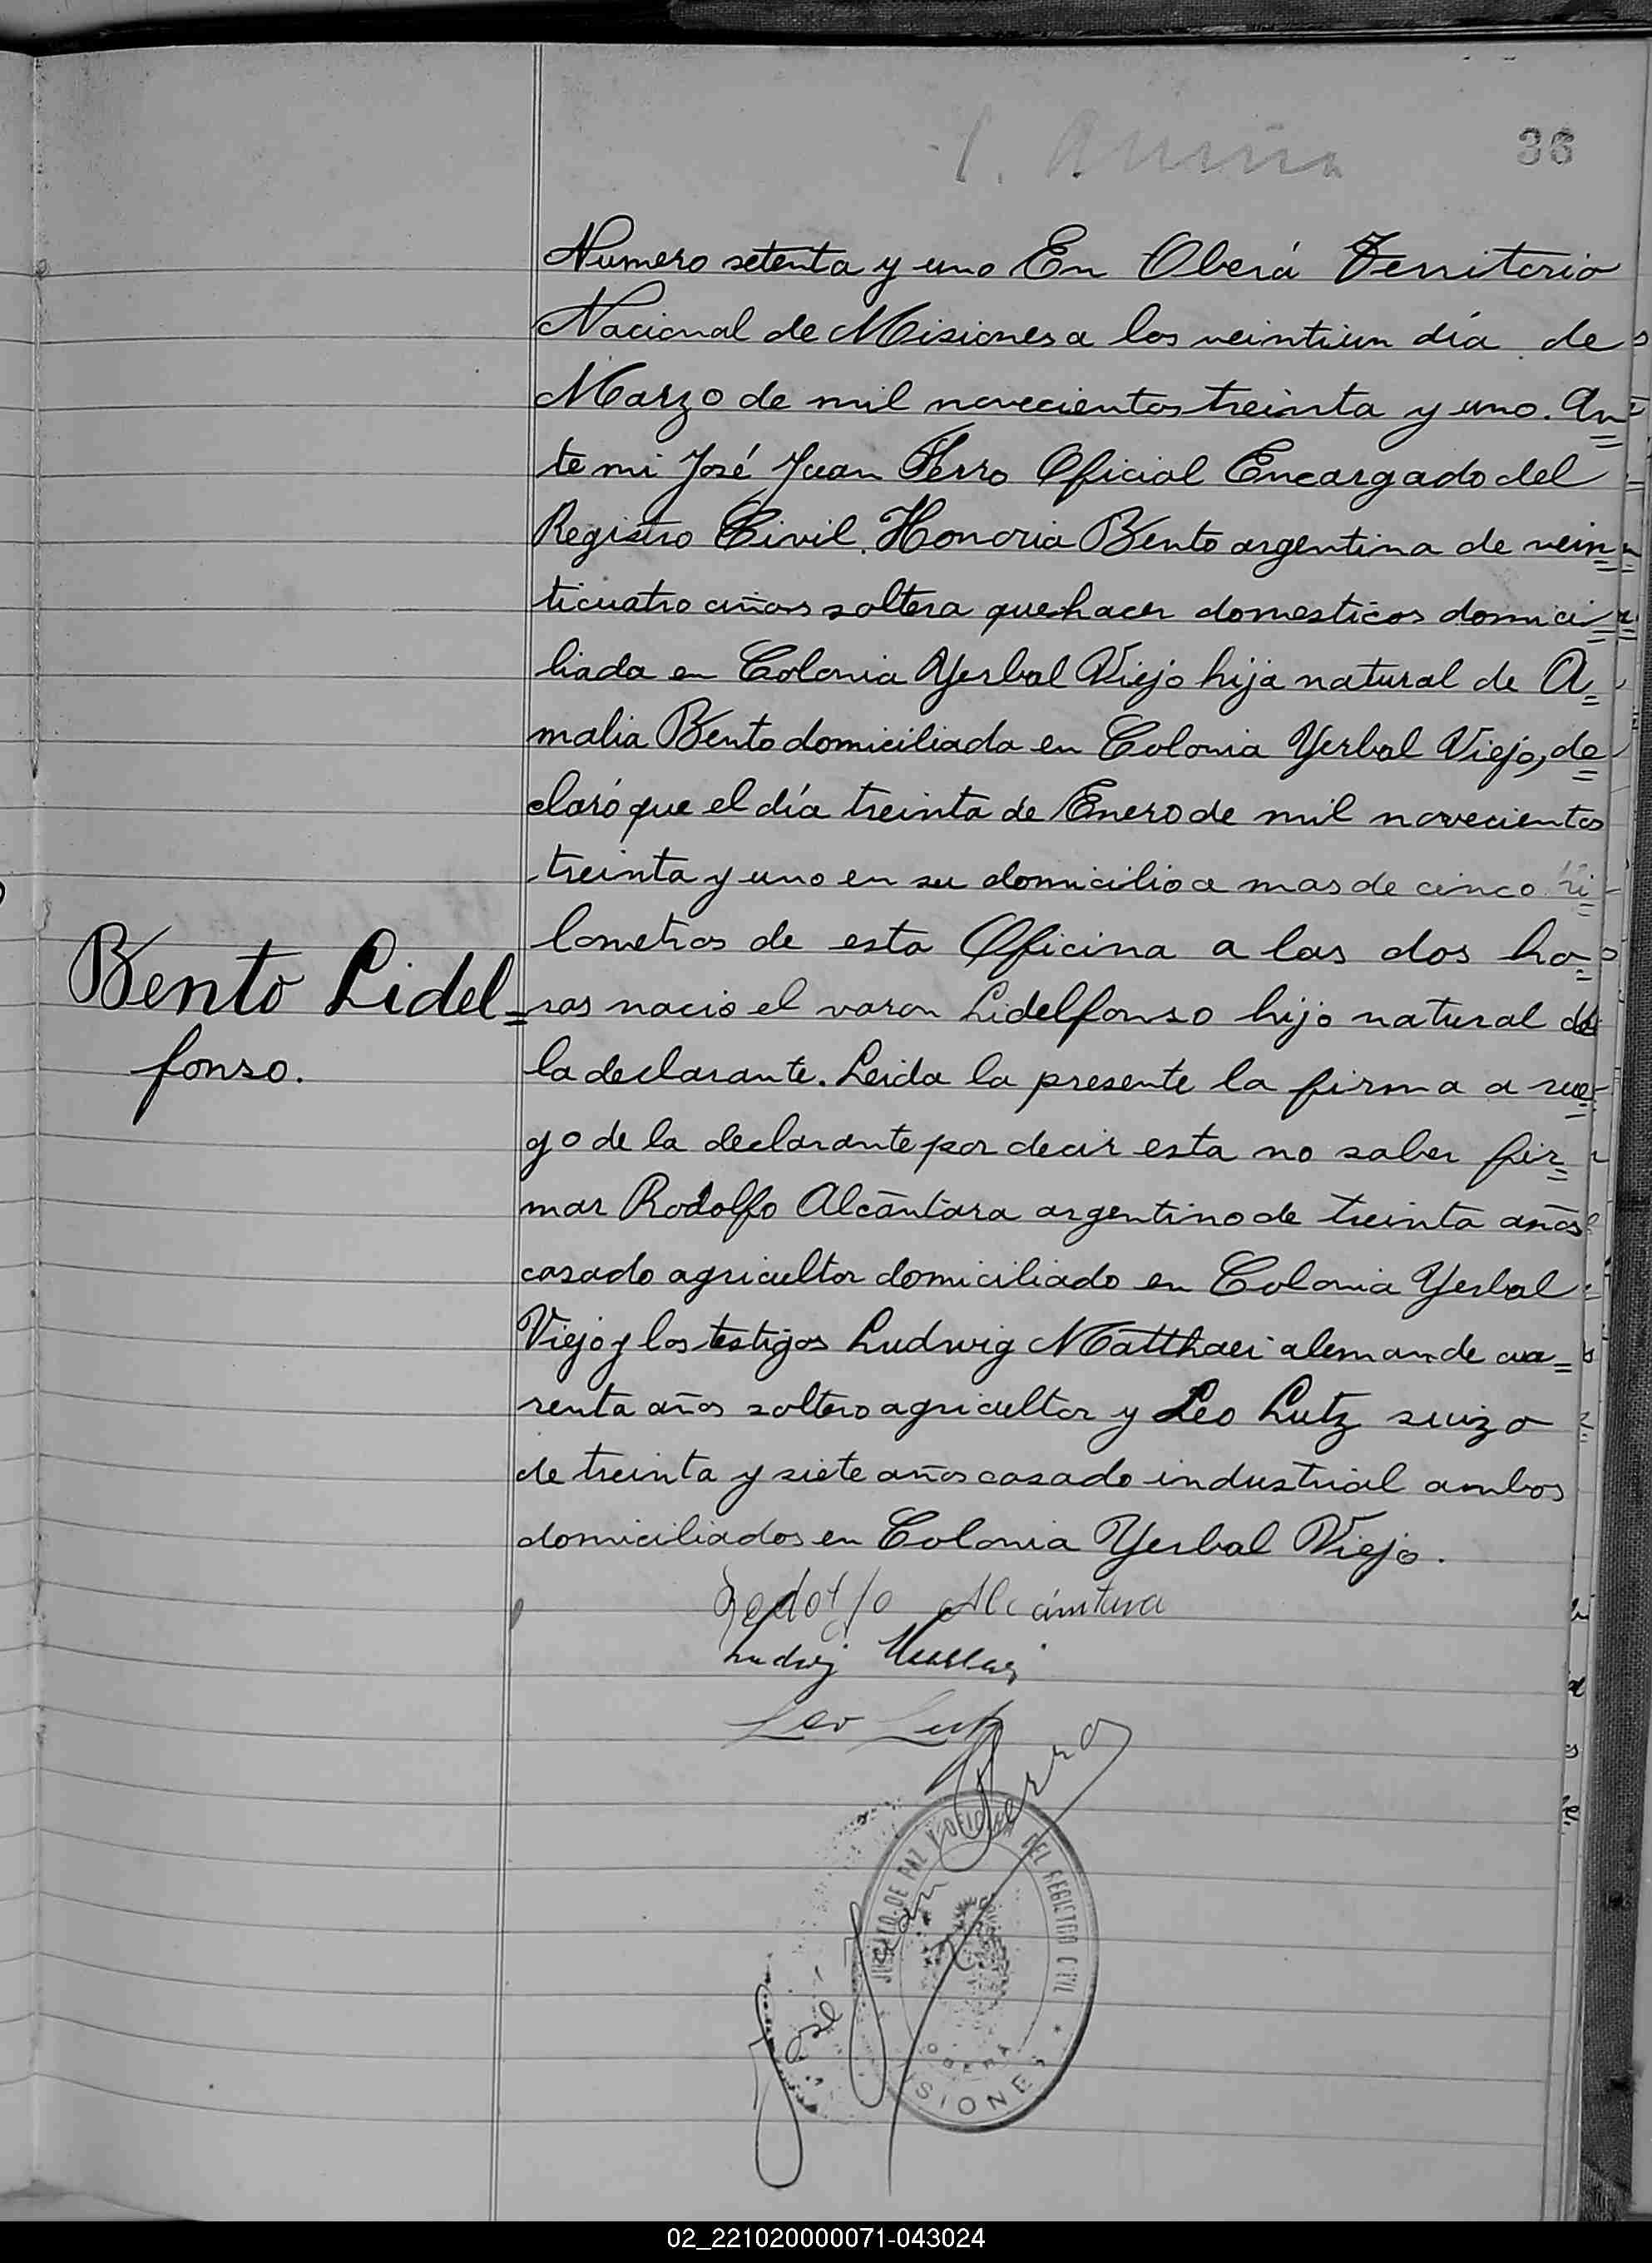 36
Numero setenta y uno En Oberá Territorio
Nacional de Misiones a los veintiun día de
Marzo de mil novecientos treinta y uno. An=
te mi José Juan Ferro Oficial Encargado del
Registro Civil. Honoria Bento argentina de vein=
ticuatro años soltera quehacer domesticos domici=
liada en Colonia Yerbal Viejo hija natural de A=
malia Bento domiciliada en Colonia Yerbal Viejo, de=
claró que el día treinta de Enero de mil novecientos
treinta y uno en su domicilio a mas de cinco ki=
lometros de esta Oficina a las dos ho=
Bento Lidel=
fonso.
ras nació el varon Lidelfonso hijo natural de
la declarante. Leida la presente la firma a rue=
go de la declarante por decir esta no saber fir=
mar Rodolfo Alcántara argentino de treinta años
casado agricultor domiciliado en Colonia Yerbal
Viejo y los testigos Ludwig Matthaei aleman de cua=
renta años soltero agricultor y Leo Lutz suizo
de treinta y siete años casado industrial ambos
domiciliados en Colonia Yerbal Viejo.
Rodolfo Alcántara
Ludwig Matthaei
Leo Lutz
José Juan Ferro
JUZGADO DE PAZ Y OFICINA DEL REGISTRO CIVIL
OBERA
MISIONES
02_221020000071-043024